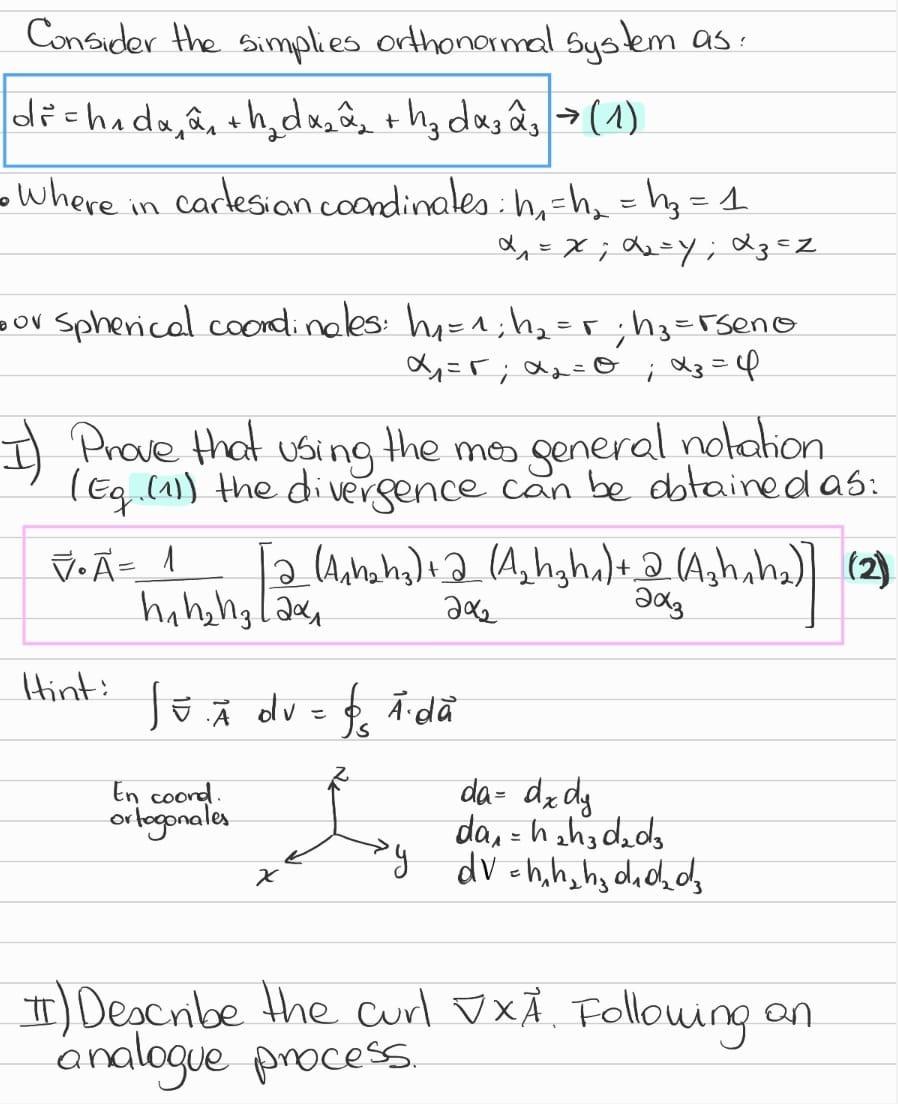 Consider the simplies orthonormal system as:
dr⃗ = h₁dα₁α̂₁ + h₂dα₂α̂₂ + h₃dα₃α̂₃ → (1)
• Where in cartesian coordinates: h₁=h₂=h₃=1
α₁ = x ; α₂=y ; α₃=z
• or spherical coordinates: h₁=1 ; h₂=r ; h₃=rsenθ
α₁=r ; α₂=θ ; α₃=φ
I) Prove that using the mos general notation
(Eq.(1)) the divergence can be obtained as:
∇⃗·A⃗ = 1/(h₁h₂h₃) [∂/∂α₁ (A₁h₂h₃) + ∂/∂α₂ (A₂h₃h₁) + ∂/∂α₃ (A₃h₁h₂)] (2)
Hint: ∫∇⃗·A⃗ dv = ∮ₛ A⃗·da⃗
En coord.
ortogonales
z
y
x
da = dxdy
da₁ = h₂h₃d₂d₃
dV = h₁h₂h₃d₁d₂d₃
II) Describe the curl ∇×A⃗. Following an
analogue process.